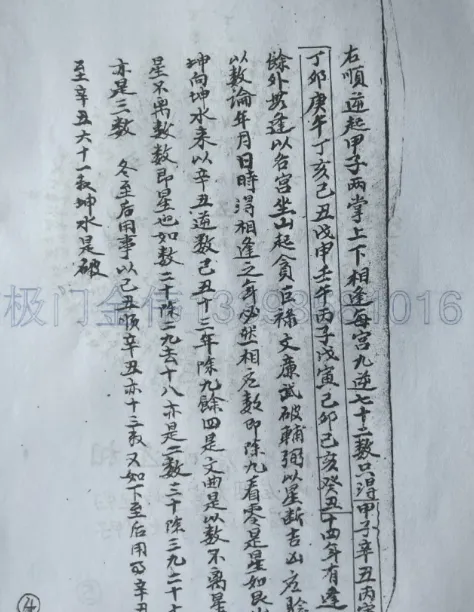 右順逆起甲子兩掌上下相逢每宫九逆七十二数只得甲子辛丑丙
丁卯庚午丁亥己丑戊申壬午丙子戊寅己卯己亥癸丑十四年有逢
餘外無逢以各宫坐山起貪巨禄文廉武破輔弼以星断吉凶应
以数論年月日時得相逢之年必然一相应数即除九看零是星如艮
坤向坤水来以辛丑逆数己丑十三年除九餘四是文曲是以数不离星
星不离数数即星也如数二十除二九去十八亦是二数三十除三九二十七
亦是三数 冬至后用事以己丑順辛丑亦十三数又如下至后用 辛丑
至辛丑六十一数坤水是破
极门金
1016
④